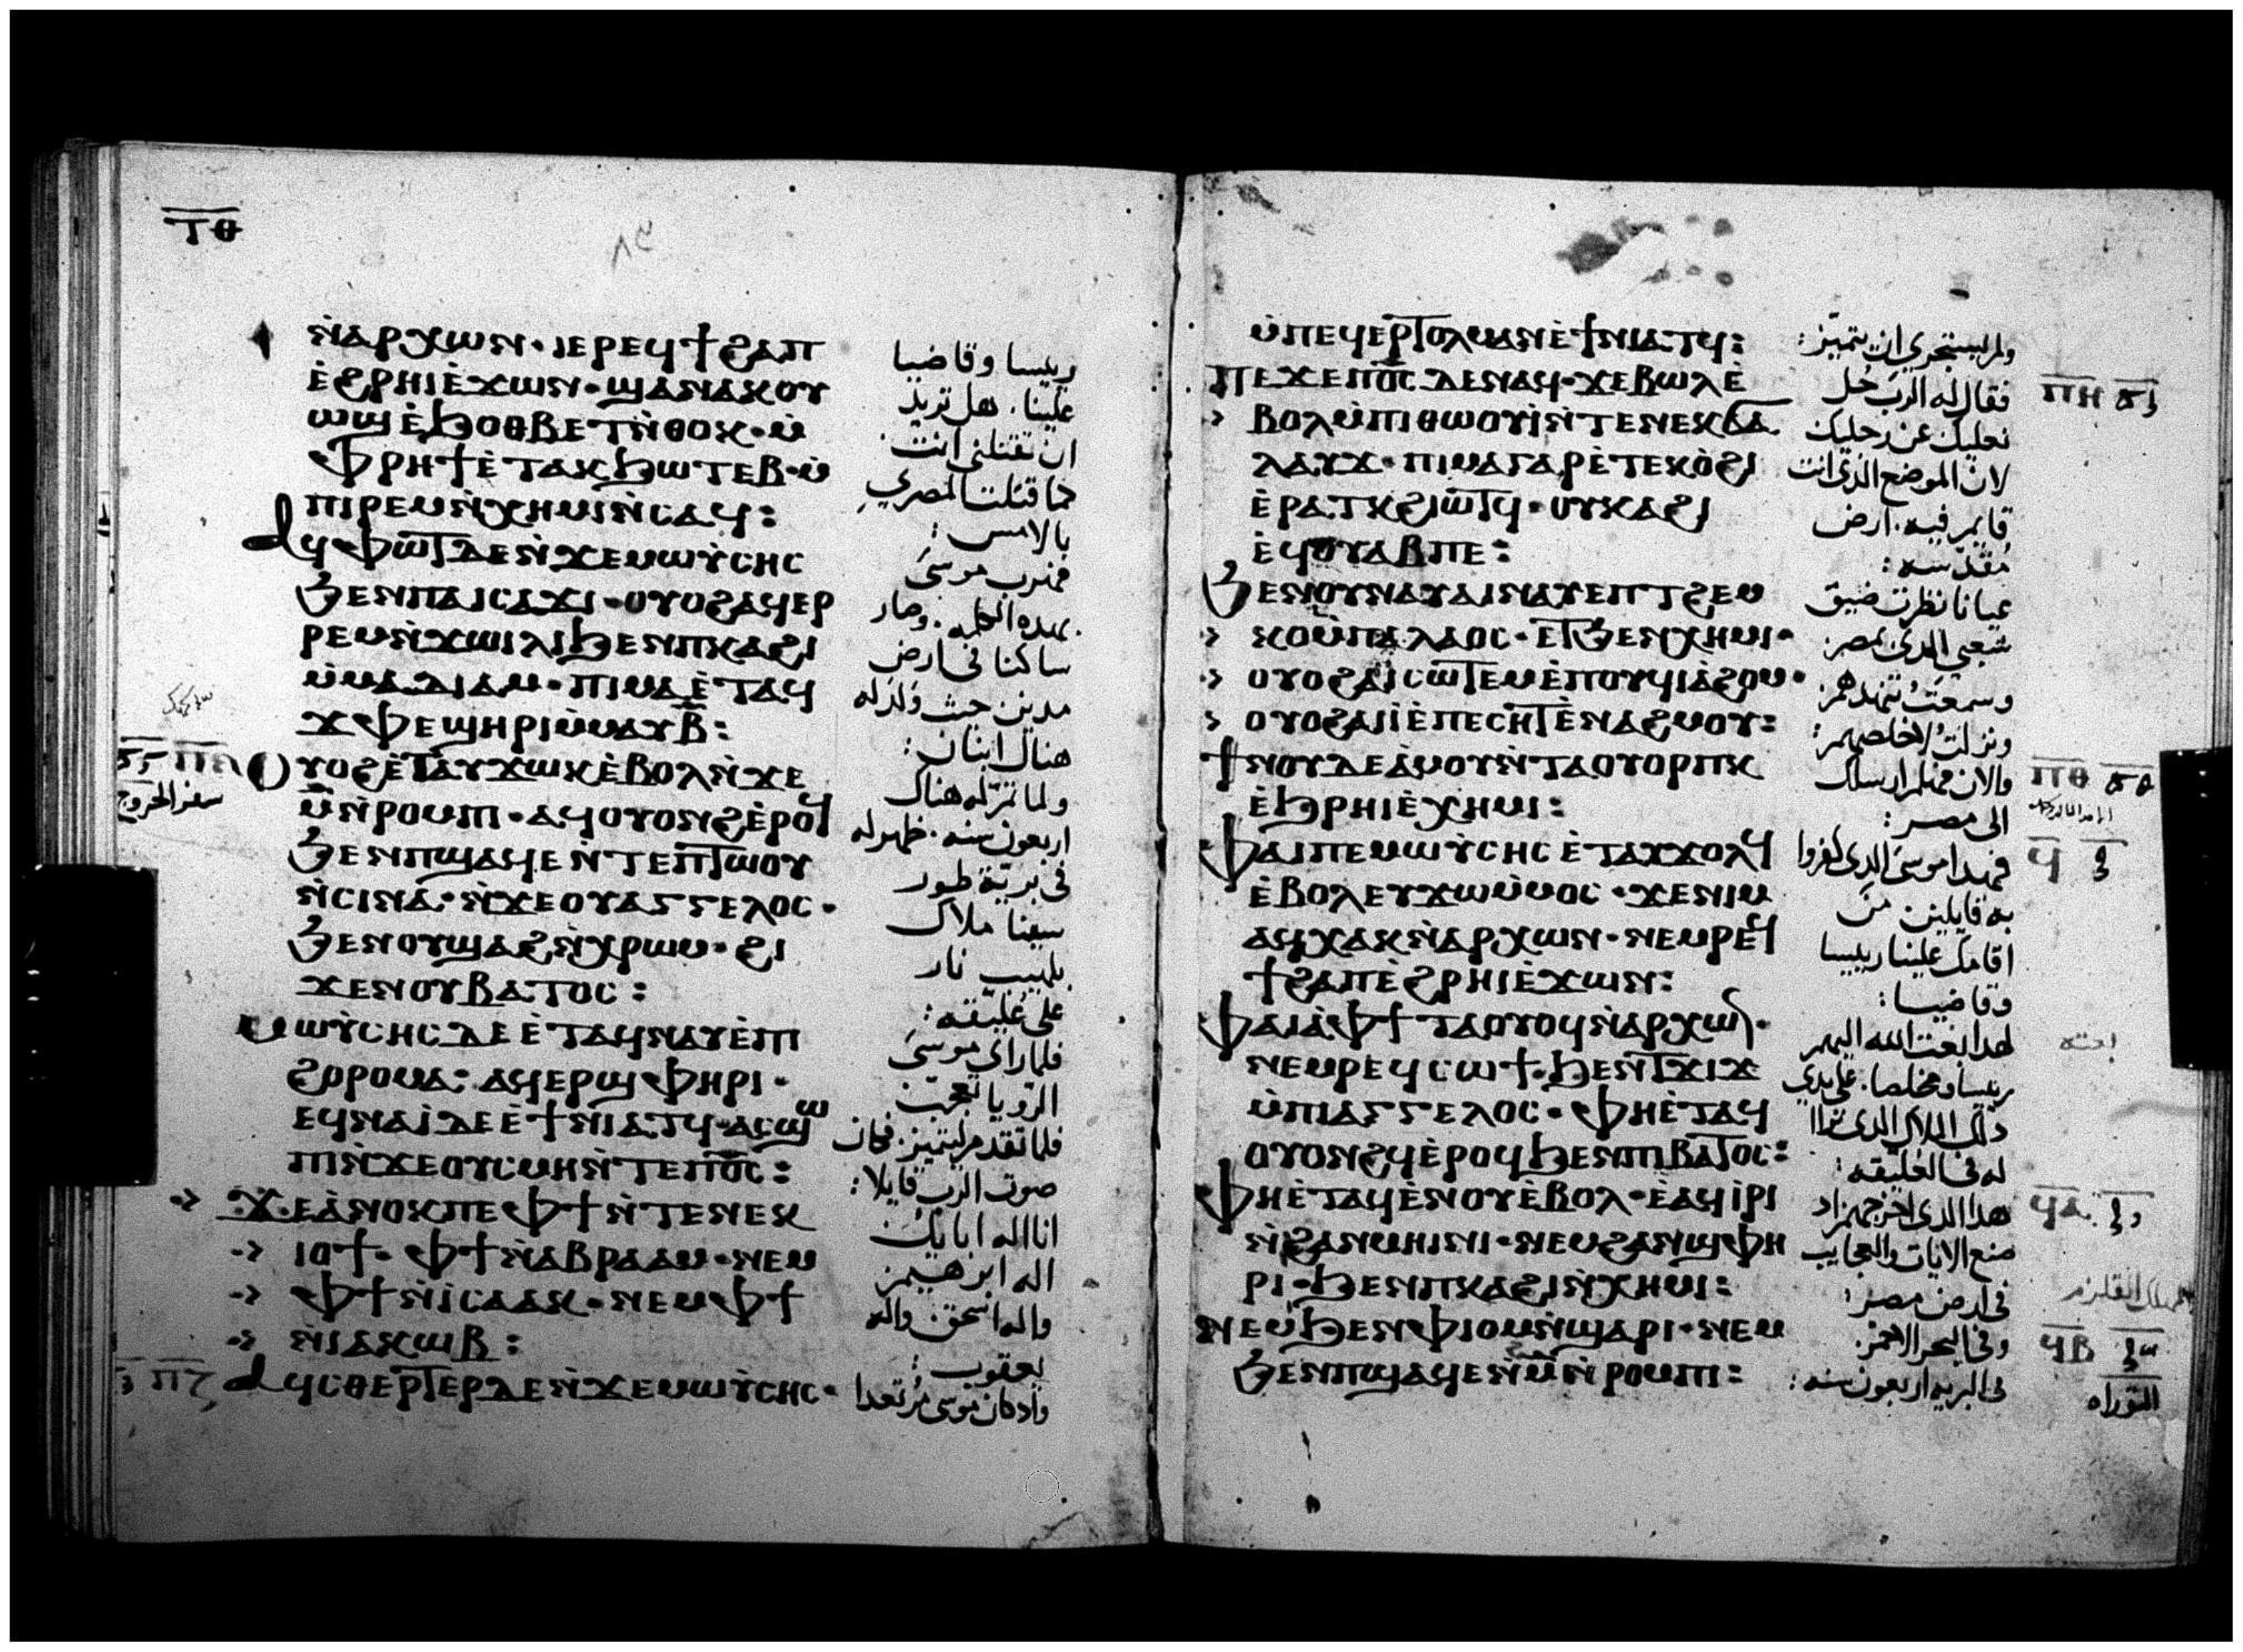 ⲧⲑ
ⲛ̀ⲁⲣⲭⲱⲛ· ⲓⲉⲣⲉϥϯϩⲁⲡ
ⲉ̀ϩⲣⲏⲓⲉ̀ϫⲱⲛ· ϣⲁⲛⲁⲕⲟⲩ
ⲱϣⲉ̀ϧⲟⲑⲃⲉⲧⲛ̀ⲑⲟⲕ· ⲙ̀
ⲫⲣⲏϯⲉ̀ⲧⲁⲕϧⲱⲧⲉⲃ· ⲙ̀
ⲡⲓⲣⲉⲙⲛ̀ⲭⲏⲙⲓⲛ̀ⲥⲁϥ:
ⲁϥⲫⲱⲧⲇⲉⲛ̀ϫⲉⲙⲱⲩ̀ⲥⲏⲥ
ϧⲉⲛⲡⲁⲓⲥⲁϫⲓ· ⲟⲩⲟϩⲁϥⲉⲣ
ⲣⲉⲙⲛ̀ϫⲱⲓⲗⲓϧⲉⲛⲡⲕⲁϩⲓ
ⲙ̀ⲙⲁⲇⲓⲁⲙ· ⲡⲓⲙⲁⲉ̀ⲧⲁϥ
ϫⲫⲉϣⲏⲣⲓⲙ̀ⲙⲁⲩⲃ̅:
ⲟⲩⲟϩⲉ̀ⲧⲁⲩϫⲱⲕⲉ̀ⲃⲟⲗⲛ̀ϫⲉ
ⲙ̅ⲛ̀ⲣⲟⲙⲡⲓ· ⲁϥⲟⲩⲟⲛϩⲉ̀ⲣⲟϥ
ϧⲉⲛⲡϣⲁϥⲉⲛ̀ⲧⲉⲡⲧⲱⲟⲩ
ⲛ̀ⲥⲓⲛⲁ· ⲛ̀ϫⲉⲟⲩⲁⲅⲅⲉⲗⲟⲥ·
ϧⲉⲛⲟⲩϣⲁϩⲛ̀ⲭⲣⲱⲙ· ϩⲓ
ϫⲉⲛⲟⲩⲃⲁⲧⲟⲥ:
ⲙⲱⲩ̀ⲥⲏⲥⲇⲉⲉ̀ⲧⲁϥⲛⲁⲩⲉ̀ⲡⲓ
ϩⲟⲣⲟⲙⲁ· ⲁϥⲉⲣϣⲫⲏⲣⲓ·
ⲉϥⲛⲁⲓ̀ⲇⲉⲉ̀ϯⲛⲓⲁⲧϥ· ⲁⲥϣⲱ
ⲡⲓⲛ̀ϫⲉⲟⲩⲥⲙⲏⲛ̀ⲧⲉⲡⲟ̅ⲥ̅:
ϫⲉⲁ̀ⲛⲟⲕⲡⲉⲫϯⲛ̀ⲧⲉⲛⲉⲕ
ⲓⲟϯ· ⲫϯⲛ̀ⲁⲃⲣⲁⲁⲙ· ⲛⲉⲙ
ⲫϯⲛ̀ⲓ̀ⲥⲁⲁⲕ· ⲛⲉⲙⲫϯ
ⲛ̀ⲓⲁⲕⲱⲃ:
ⲁϥⲥⲑⲉⲣⲧⲉⲣⲇⲉⲛ̀ϫⲉⲙⲱⲩ̀ⲥⲏⲥ·
رييسا وقاضيا
علينا. هل تريد
ان تقتلني انت
كما قتلت المصري
بالامس:
فهرب موسى
بهذه الكلمه. وصار
ساكنا في ارض
مدين حيث ولد له
هناك ابنان:
ولما تم له هناك
اربعون سنه. ظهر له
في برية طور
سينا ملاك
بلهيب نار
على عليقه:
فلما راى موسى
الرويا تعجب
فلما تقدم ليتميز. فكان
صوت الرب قايلا:
انا اله ابايك
اله ابرهيم
واله اسحق واله
يعقوب:
واد كان موسى مرتعدا
سفر الخروج
ⲙ̀ⲡⲉϥⲉⲣⲧⲟⲗⲙⲁⲛⲉ̀ϯⲛⲓⲁⲧϥ:
ⲡⲉϫⲉⲡⲟ̅ⲥ̅ⲇⲉⲛⲁϥ· ϫⲉⲃⲱⲗⲉ̀
ⲃⲟⲗⲙ̀ⲡⲓⲑⲱⲟⲩⲓ̀ⲛ̀ⲧⲉⲛⲉⲕϭⲁ
ⲗⲁⲩϫ· ⲡⲓⲙⲁⲅⲁⲣⲉ̀ⲧⲉⲕⲟ̀ϩⲓ
ⲉ̀ⲣⲁⲧⲕϩⲓⲱⲧϥ· ⲟⲩⲕⲁϩⲓ
ⲉϥⲟⲩⲁⲃⲡⲉ:
ϧⲉⲛⲟⲩⲛⲁⲩⲁⲓⲛⲁⲩⲉⲡⲧϩⲉⲙ
ⲕⲟⲙ̀ⲡⲁⲗⲁⲟⲥ· ⲉⲧϧⲉⲛⲭⲏⲙⲓ·
ⲟⲩⲟϩⲁⲓ̀ⲥⲱⲧⲉⲙⲉ̀ⲡⲟⲩϥⲓⲁ̀ϩⲟⲙ·
ⲟⲩⲟϩⲁⲓⲓ̀ⲉ̀ⲡⲉⲥⲏⲧⲉ̀ⲛⲁϩⲙⲟⲩ:
ϯⲛⲟⲩⲇⲉⲁ̀ⲙⲟⲩⲛ̀ⲧⲁⲟⲩⲟⲣⲡⲕ
ⲉ̀ϧⲣⲏⲓⲉ̀ⲭⲏⲙⲓ:
ⲫⲁⲓⲡⲉⲙⲱⲩ̀ⲥⲏⲥⲉ̀ⲧⲁⲩϫⲟⲗϥ
ⲉ̀ⲃⲟⲗⲉⲩϫⲱⲙ̀ⲙⲟⲥ· ϫⲉⲛⲓⲙ
ⲁϥⲭⲁⲕⲛ̀ⲁⲣⲭⲱⲛ· ⲛⲉⲙⲣⲉϥ
ϯϩⲁⲡⲉ̀ϩⲣⲏⲓⲉ̀ϫⲱⲛ:
ⲫⲁⲓⲁ̀ⲫϯⲧⲁⲟⲩⲟϥⲛ̀ⲁⲣⲭⲱⲛ·
ⲛⲉⲙⲣⲉϥⲥⲱϯ· ϧⲉⲛⲧϫⲓϫ
ⲙ̀ⲡⲓⲁⲅⲅⲉⲗⲟⲥ· ⲫⲏⲉ̀ⲧⲁϥ
ⲟⲩⲟⲛϩϥⲉ̀ⲣⲟϥϧⲉⲛⲡⲓⲃⲁⲧⲟⲥ:
ⲫⲏⲉ̀ⲧⲁϥⲉ̀ⲛⲟⲩⲉ̀ⲃⲟⲗ· ⲉ̀ⲁϥⲓ̀ⲣⲓ
ⲛ̀ϩⲁⲛⲙⲏⲓⲛⲓ· ⲛⲉⲙϩⲁⲛϣⲫⲏ
ⲣⲓ· ϧⲉⲛⲡⲕⲁϩⲓⲛ̀ⲭⲏⲙⲓ:
ⲛⲉⲙϧⲉⲛⲫⲓⲟⲙⲛ̀ϣⲁⲣⲓ· ⲛⲉⲙ
ϧⲉⲛⲡϣⲁϥⲉⲛ̀ⲙ̅ⲛ̀ⲣⲟⲙⲡⲓ:
ولم يستجري ان يتميز:
فقال له الرب حل
نعليك عن رجليك
لان الموضع الذي انت
قايم فيه. ارض
مقدسه:
عيانا نظرت ضيق
شعبي الذي بمصر
وسمعت تنهدهم
ونزلت لاخلصهم:
والان فهلم ارسلك
الى مصر:
فهذا موسى الذي كفروا
به قايلين من
اقامك علينا رييسا
وقاضيا:
هدا بعث الله اليهم
رييسا ومخلصا. على يدي
ذلك الملاك الذي ترااا
له في العليقه:
هدا الذي اخرجهم اد
صنع الايات والعجايب
في ارض مصر:
وفي البحر الاحمر
في البريه اربعون سنه:
ⲡⲏ
ⲡⲑ
ϥ
ϥⲁ
ϥⲃ
التوراه